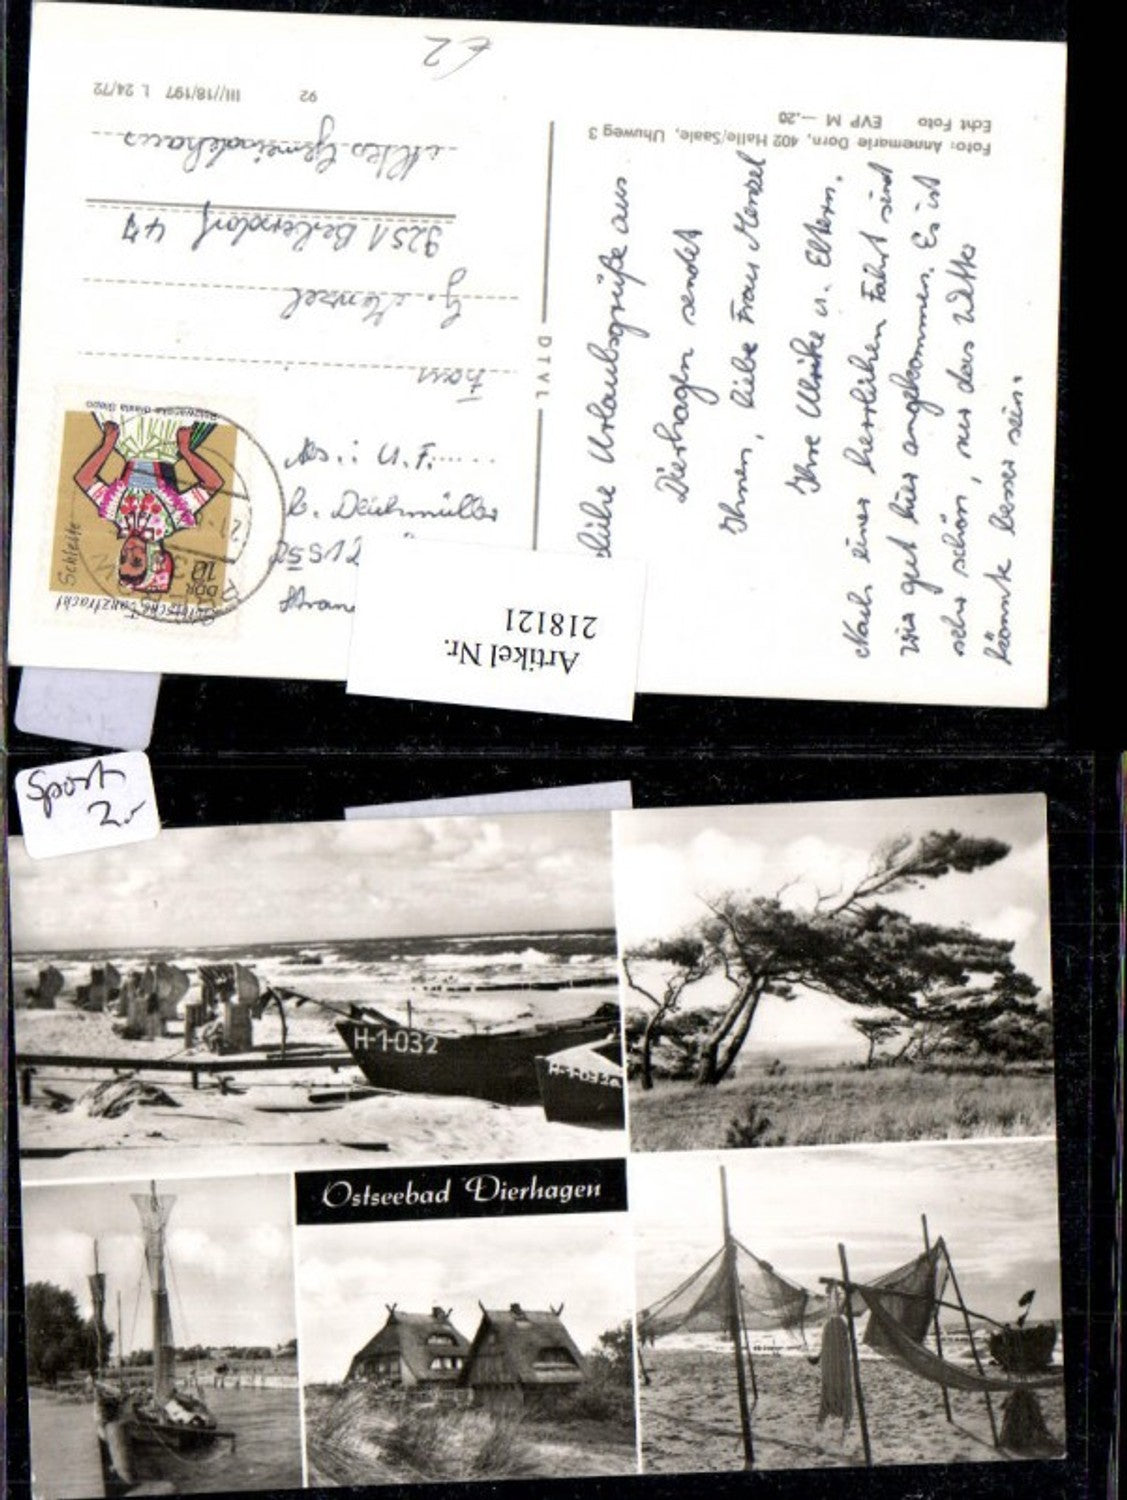 €2
Foto: Annemarie Dorn, 402 Halle/Saale, Uhuweg 3
Echt Foto EVP M —.20
92 III/18/197 L 24/72
DTVL
Liebe Urlaubsgrüße aus
Dierhagen sendet
Ihnen, liebe Frau Menzel
Ihre Ulrike u. Eltern.
Nach einer herrlichen Fahrt sind
wir gut hier angekommen. Es ist
sehr schön, nur das Wetter
könnte besser sein.
Frau
G. Menzel
9251 47
Gemeindehaus
Abs.: U. F.
b. Deichmüller
2155
Stran
Sorbische Tanztracht
Schleife
DDR
10
Serbska drasta Slepo
Artikel Nr.
218121
Sport
2.-
H-1-032
H-1-032a
Ostseebad Dierhagen